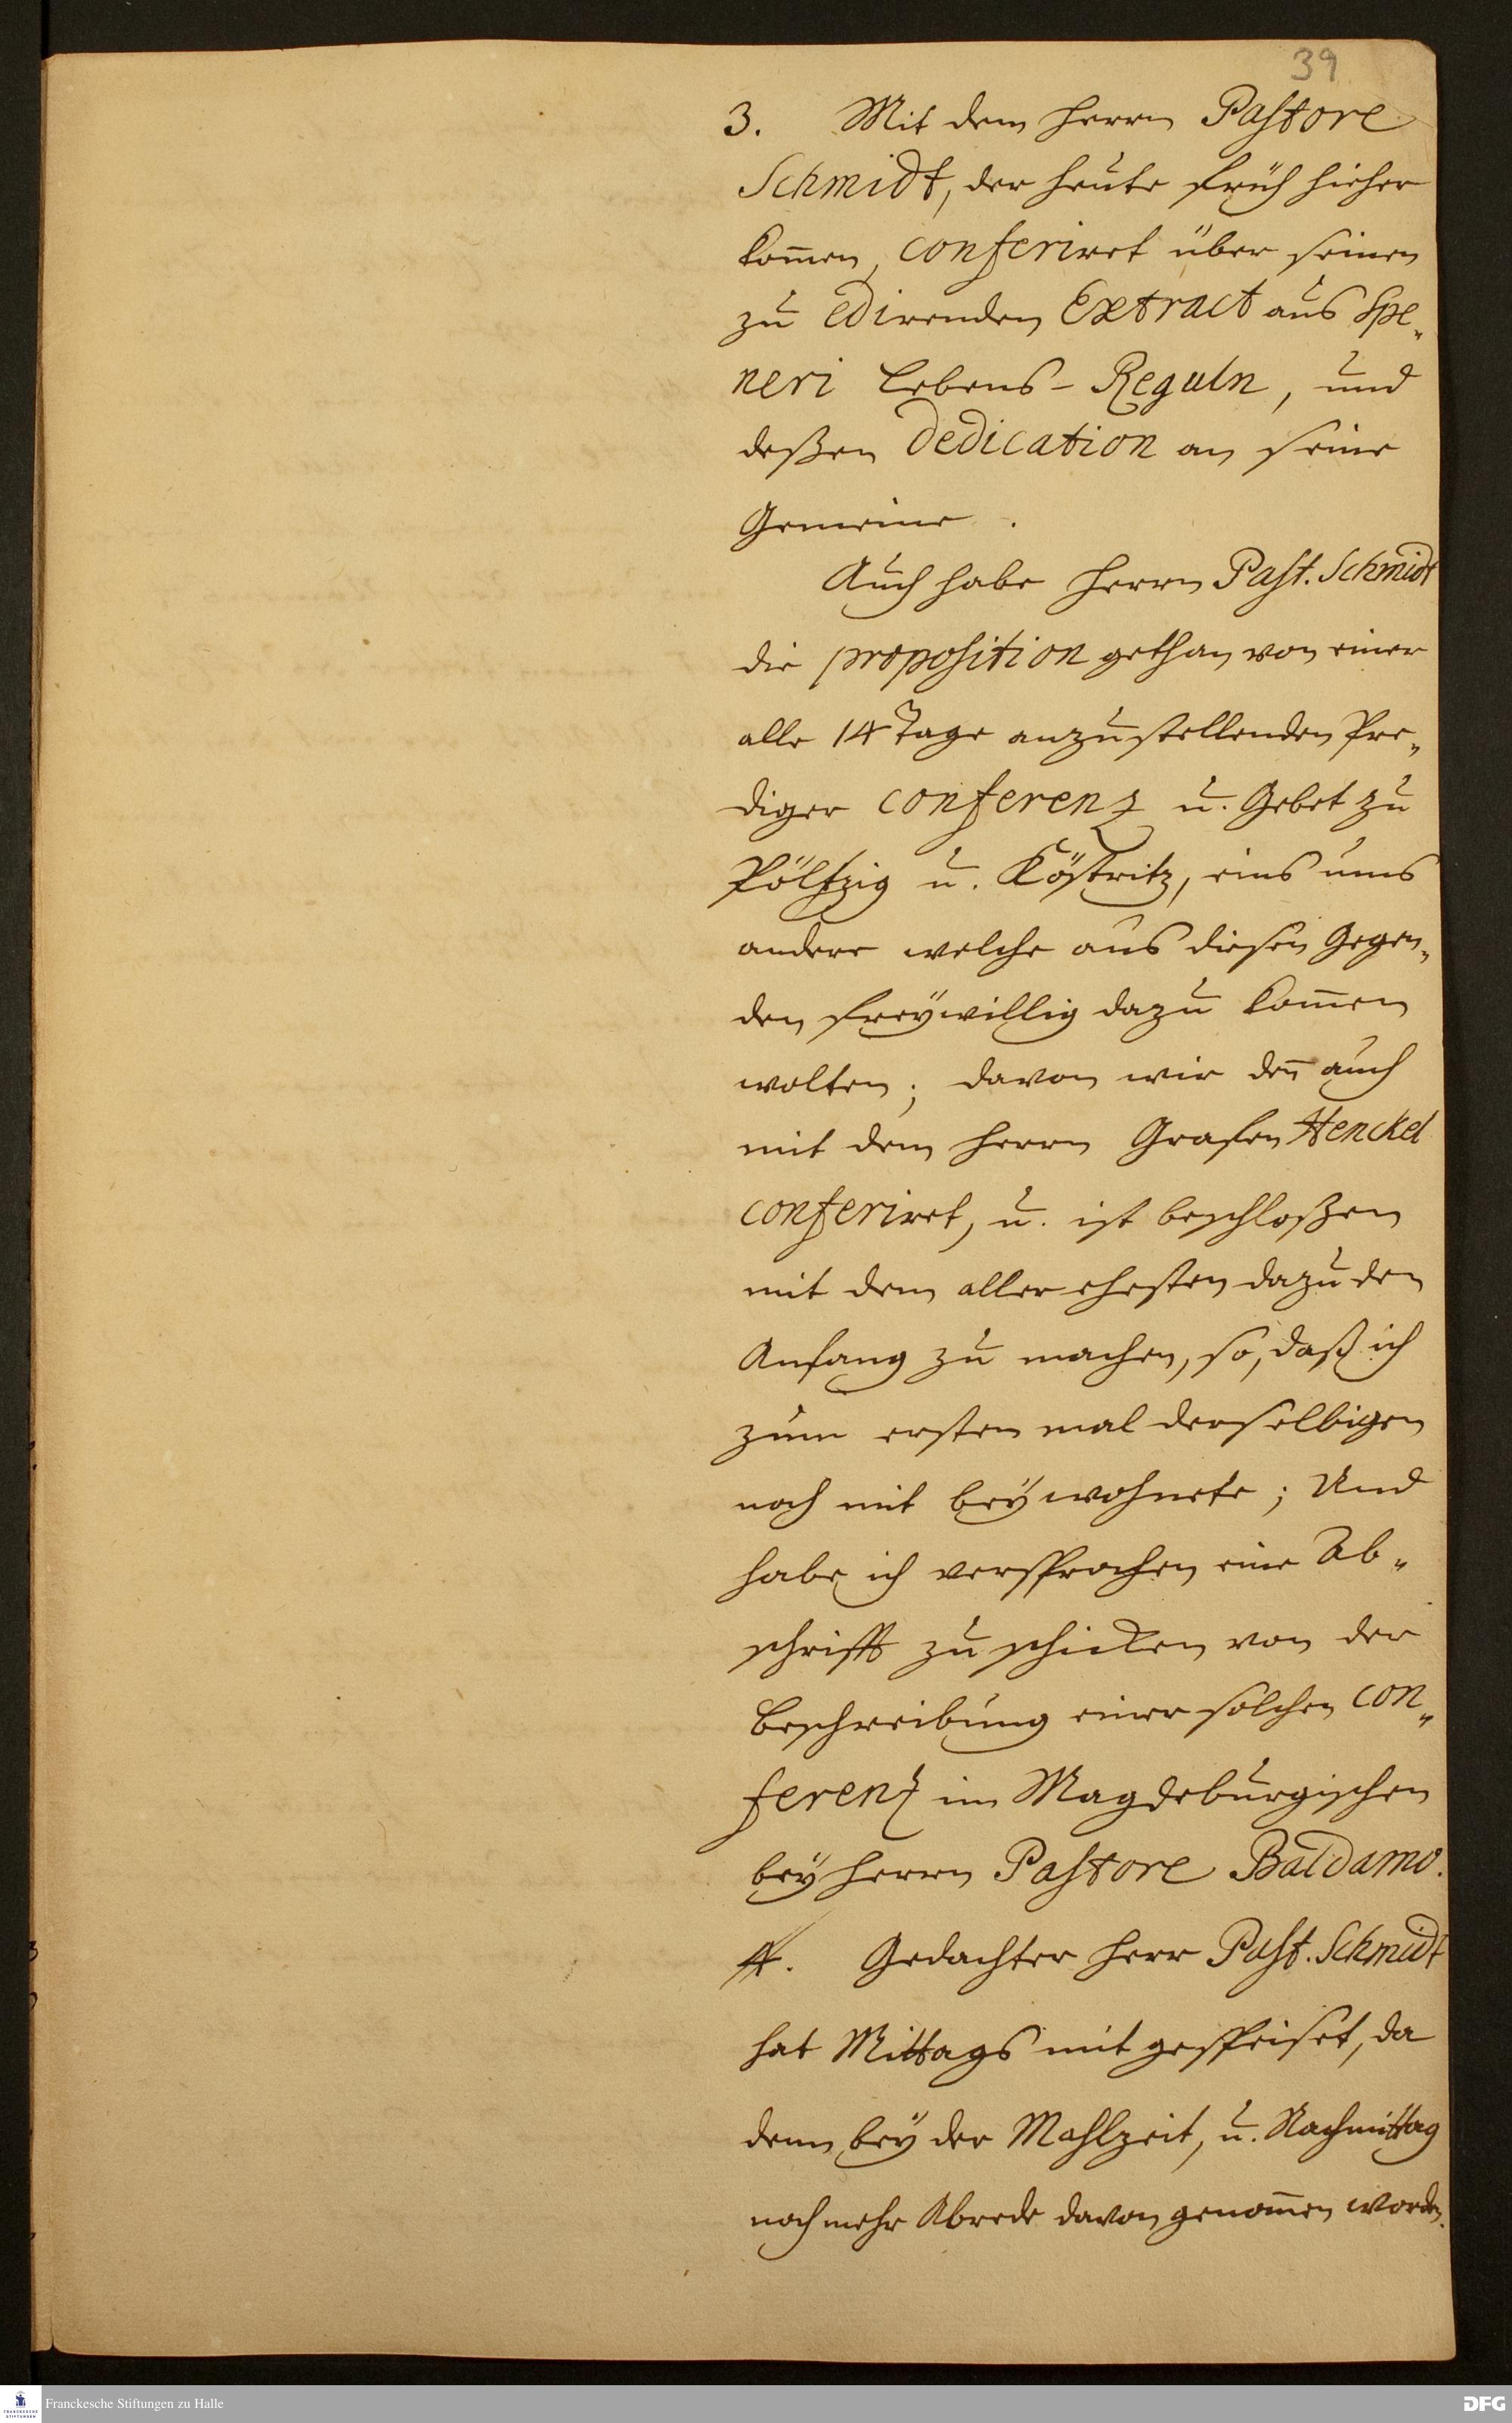 39
3. Mit dem Herrn Pastore
Schmidt, der heute früh hieher
kom̄en, conferiret über seinen
zu edirenden Extract aus Spe„
neri Lebens-Reguln, und
deßen Dedication an seine
Gemeine.
Auch habe Herrn Past. Schmidt
die proposition gethan von einer
alle 14 Tage anzustellenden Pre„
diger conferenz u. Gebet zu
Pöltzig u. Köstritz, eins ums
andere welche aus diesen Gegen„
den freÿwillig dazu kom̄en
wolten; davon wir den̄ auch
mit dem Herrn Grafen Henckel
conferiret, u. ist beschloßen
mit dem aller ehesten dazu den
Anfang zu machen, so, daß ich
zum ersten mal derselbigen
noch mit beÿwohnete; Und
habe ich versprochen eine Ab„
schrifft zu schicken von der
Beschreibung einer solchen con„
ferenz im Magdeburgischen
beÿ Herrn Pastore Baldamo.
4. Gedachter Herr Past. Schmidt
hat Mittags mit gespeiset, da
denn beÿ der Mahlzeit, u. Nachmittag
noch mehr Abrede davon genom̄en worden.
Franckesche Stiftungen zu Halle
DFG